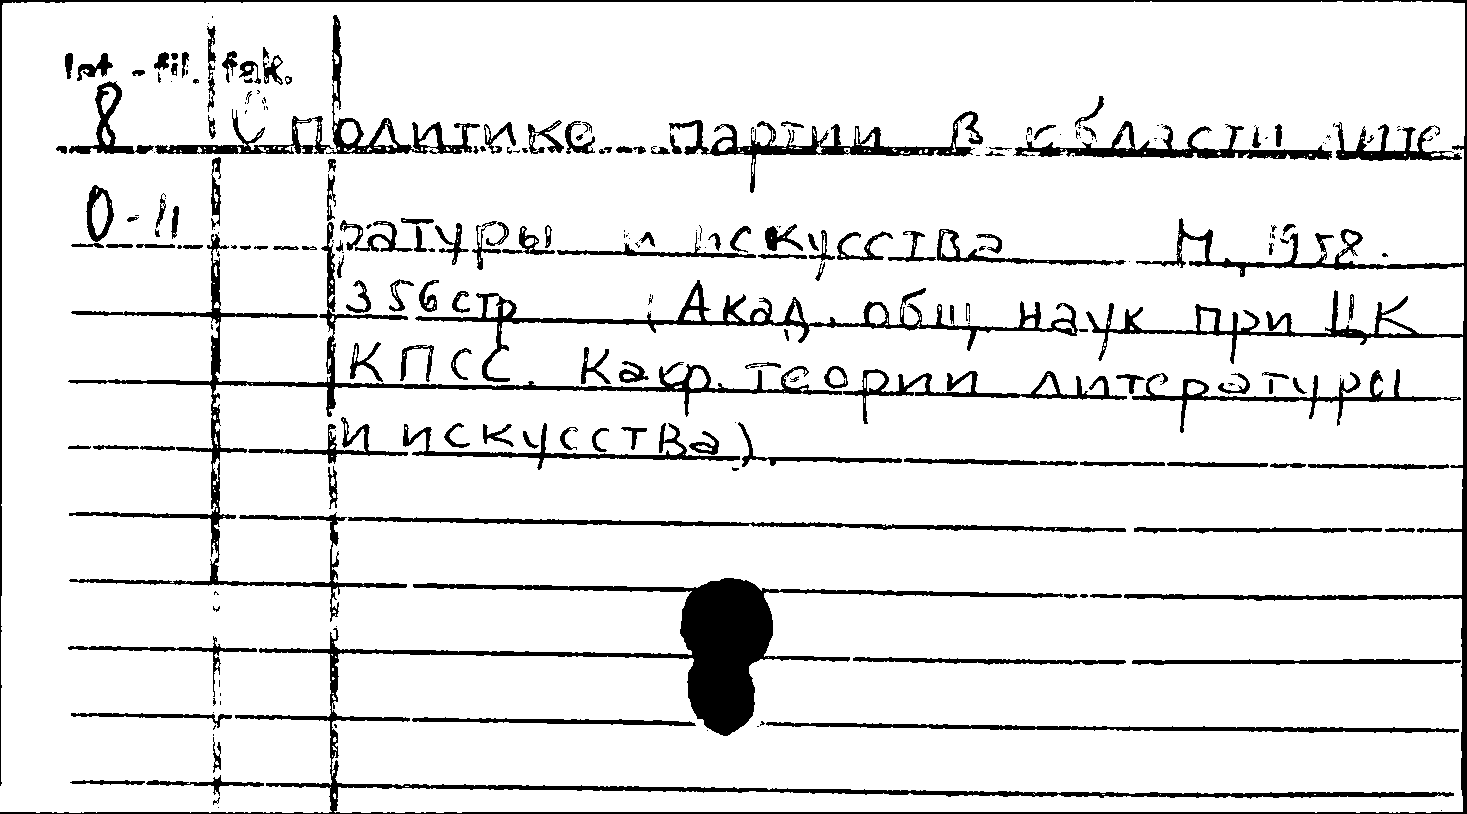 Int.-fil. fak.
8 О политике партии в области лите-
0-11 ратуры и искусства М., 1958.
356 стр (Акад. общ. наук при ЦК
КПСС. Каф. теории литературы
и искусства).